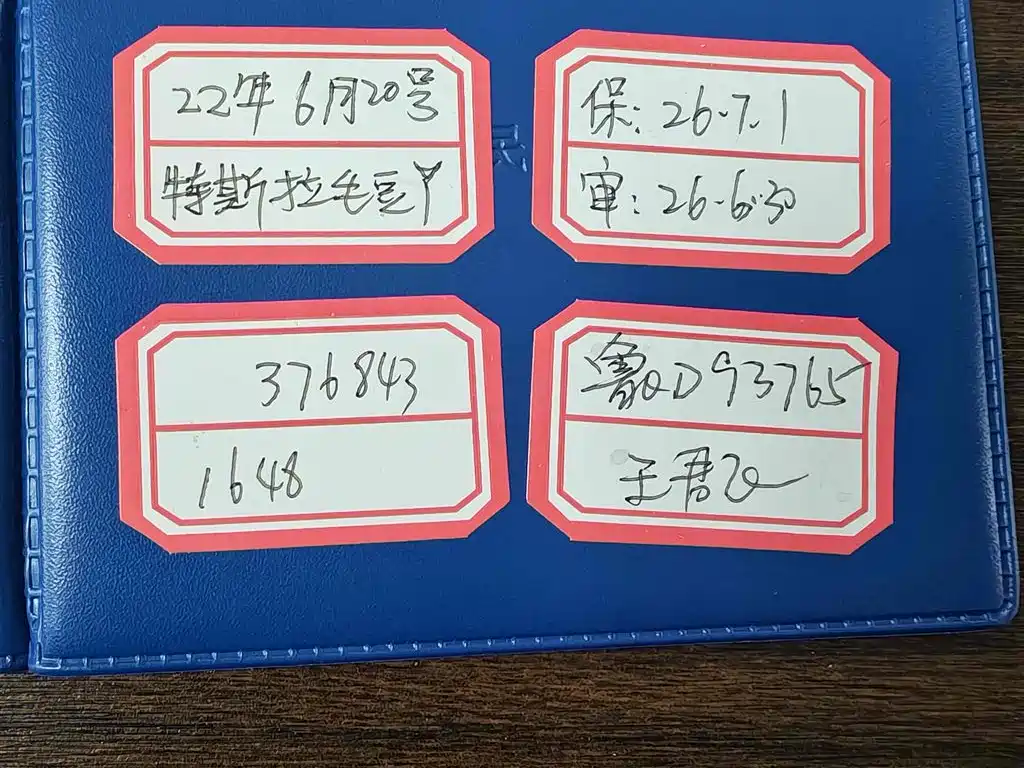 22年6月20号
特斯拉毛豆Y
保:26.7.1
审:26.6.30
376843
1648
鲁QD93765
王君